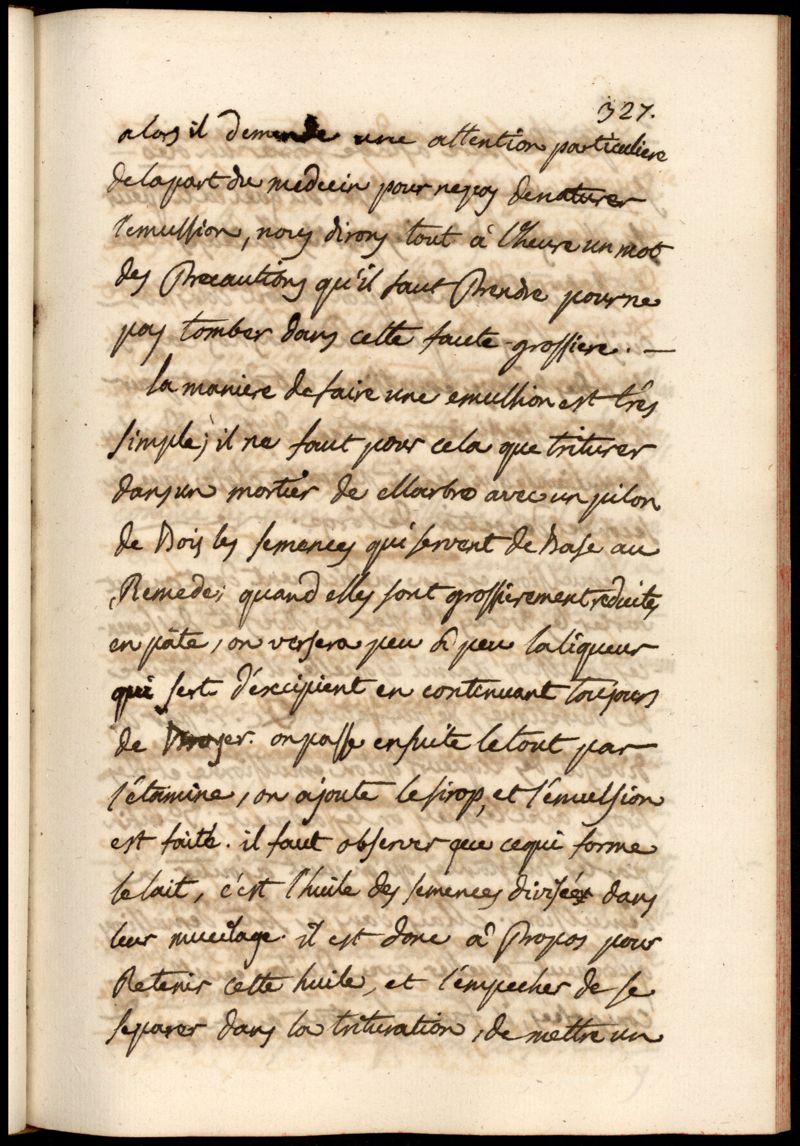 327.
alors il demende une attention particuliere
de la part du medecin pour ne pas denaturer
l'emulsion, nous dirons tout à l'heure un mot
des Precautions qu'il faut Prendre pour ne
pas tomber dans cette faute grossiere. —
la maniere de faire une emulsion est très
simple; il ne faut pour cela que triturer
dans un mortier de Marbre avec un pilon
de Bois les semences qui servent de Base au
Remede; quand elles sont grossierement reduites
en pâte, on versera peu à peu la liqueur
qui sert d'éxcipient en continuant toujours
de Broyer. on passe ensuite le tout par
l'étamine, on ajoute le sirop, et l'émulsion
est faite. il faut observer que ce qui forme
le lait, c'est l'huile des semences divisée dans
leur mucilage. il est donc à Propos pour
Retenir cette huile, et l'empecher de se
separer dans la trituration, de mettre un